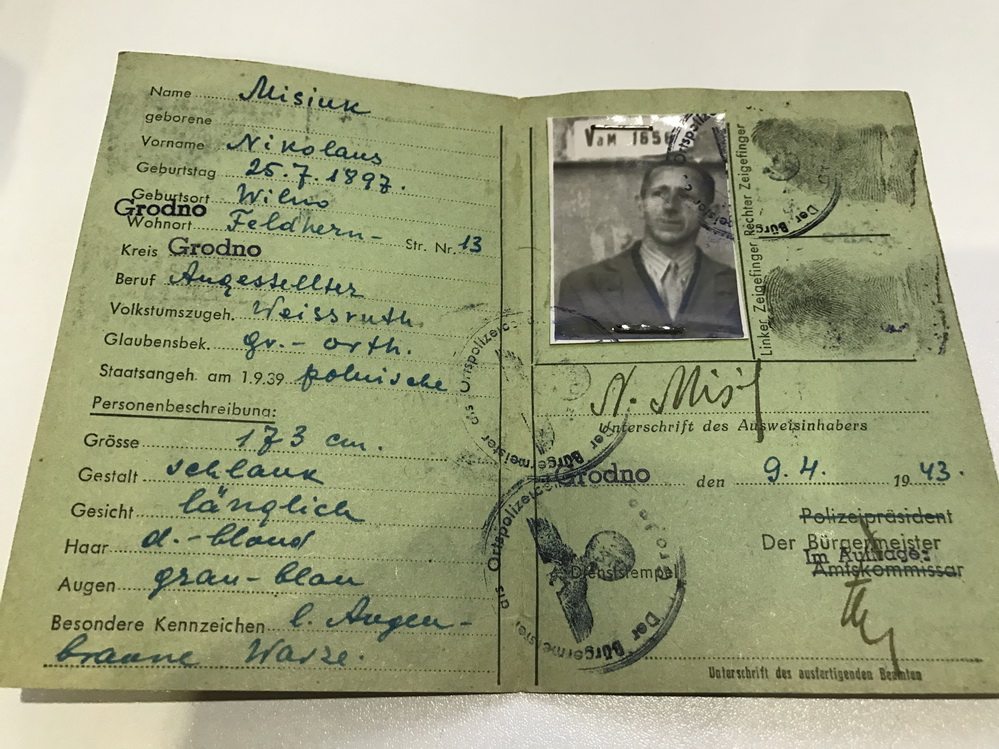 Name Misiuk
geborene
Vorname Nikolaus
Geburtstag 25.7.1897.
Geburtsort Wilno
Grodno
Wohnort Feldhern- Str. Nr. 13
Kreis Grodno
Beruf Angestellter
Volkstumszugeh. Weissruth.
Glaubensbek. gr.-orth.
Staatsangeh. am 1.9.39 polnische
Personenbeschreibung:
Grösse 173 cm.
Gestalt schlank
Gesicht länglich
Haar d.-blond
Augen grau-blau
Besondere Kennzeichen l. Augen-
braune Warze.
VaM 1656
Rechter Zeigefinger
Linker Zeigefinger
Der Bürgermeister als Ortspolizei
N. Mis
Unterschrift des Ausweisinhabers
Grodno den 9.4. 1943.
Polizeipräsident
Der Bürgermeister
Im Auftrage:
Amtskommissar
Dienststempel
Der Bürgermeister als Ortspolizei
Unterschrift des ausfertigenden Beamten